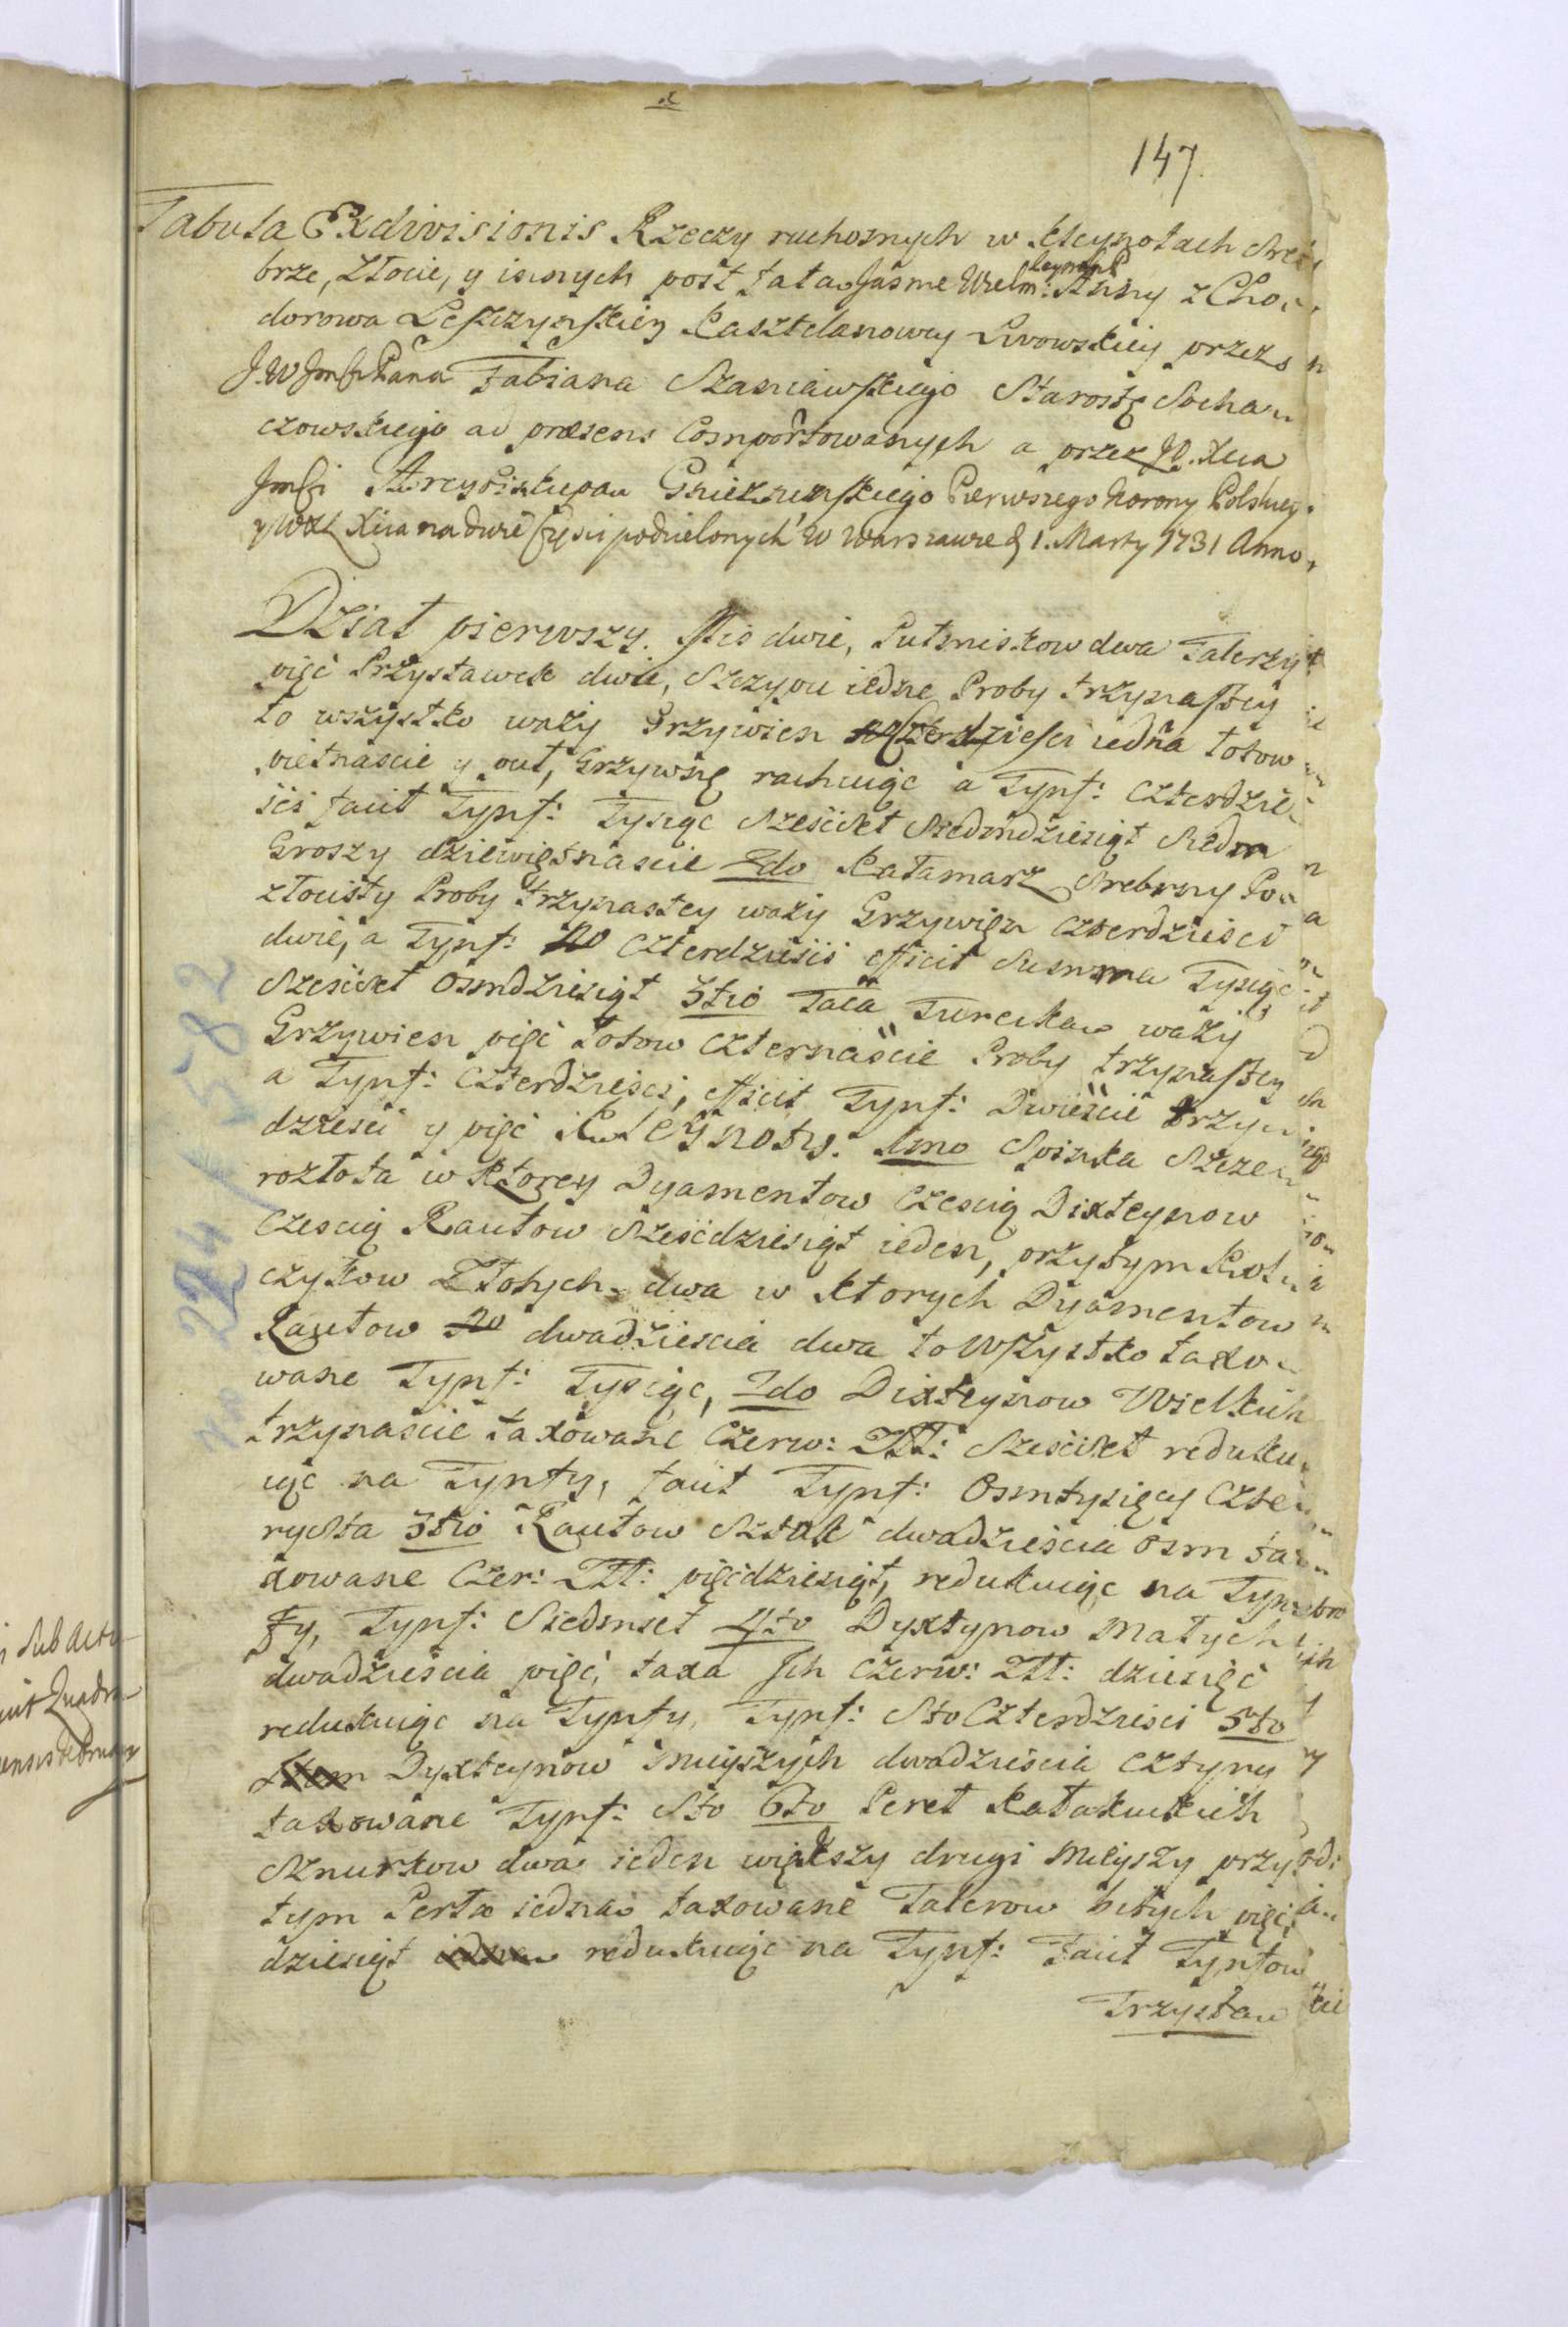 147
Tabula Exdivisionis Rzeczy ruchomych w kleynotach sre
brze, Złocie, y innych post fata Jasnie Wielm: Anny z Cho
dorowa Leszczynskiey Kasztelanowey Lwowskiey przez
J.W Jmsci Pana Fabiana Szaniawskiego Starostę Socha
czowskiego ad praesens Comportowanych a przez JO. Xcia
Jmsci Arcybiskupa Gnieznienskiego Pierwszego Korony Polskiey
y WXL Xcia na dwie Częsci podzielonych w Warszawie d 1. Marty 1731 Anno
Dział pierwszy. Mis dwie, Putmiskow dwa Talerzy
pięć Przystawek dwie, Szczypce iedne Proby trzynastey
to wszystko waży Grzywien Czterdziesci iedna łotow
pietnascie y puł, Grzywnę rachuiąc a Tynf: czterdzie
sci facit Tynf: Tysiąc szescset siedmdziesiąt siedm
Groszy dziewiętnascie 2do Kałamarz srebrny Po
złocisty Proby trzynastey waży Grzywien czterdziesci
dwie, a Tynf: czterdziesci efficit Summa Tysiąc
szescset osmdziesiąt 3tio Taca Turecka waży
Grzywien pięć łotow czternascie Proby trzynastey
a Tynf: czterdziesci, efficit Tynf: Dwiescie trzy
dziesci y pięć Kleynoty. 1mo Spinka szcze
rozłota w Ktorey Dyamentow Czescią Dixteynow
Czescią Rautow szescdziesiąt ieden, przytym Kol
czykow Złotych dwa w ktorych Dyamentow
Rautow dwadziescia dwa to wszystko taxo
wane Tynf: Tysiąc, 2do Dixteynow Wielkich
trzynascie taxowane Czerw: Złł: szescset reduku
iąc na Tynfy, facit Tynf: Osmtysięcy czte
rysta 3tio Rautow sztuk dwadziescia osm ta
xowane Czer: Złł: pięcdziesiąt, redukuiąc na Tyn
fy, Tynf: siedmset 4to Dyxtynow małych
dwadziescia pięć, taxa Jch Czerw: Złł: dziesięć
redukuiąc na Tynfy, Tynf: sto Czterdziesci 5to
Dyxteynow mnieyszych dwadziescia cztyry
taxowane Tynf: sto 6to Pereł Kałakuckich
sznurkow dwa ieden większy drugi mnieyszy przy
tym Perła iedna taxowane Talerow bitych pięć
dziesiąt redukuiąc na Tynf: Facit Tynfow
Trzysta